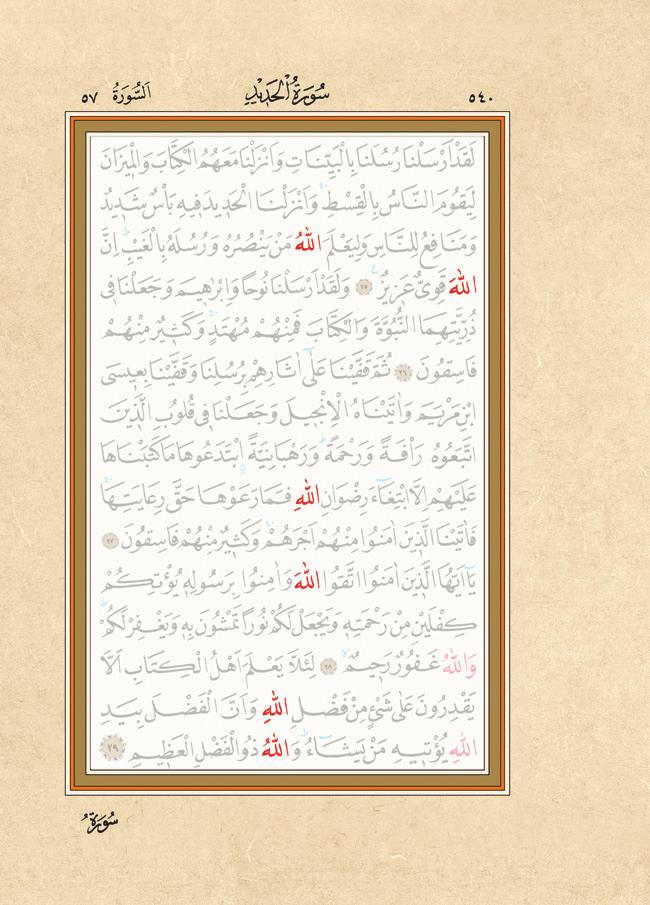 ٥٤٠ سُورَةُ الْحَدِيدِ اَلسُّورَةُ ٥٧
لَقَدْ اَرْسَلْنَا رُسُلَنَا بِالْبَيِّنَاتِ وَاَنْزَلْنَا مَعَهُمُ الْكِتَابَ وَالْمِيزَانَ
لِيَقُومَ النَّاسُ بِالْقِسْطِۚ وَاَنْزَلْنَا الْحَدِيدَ فِيهِ بَاْسٌ شَدِيدٌ
وَمَنَافِعُ لِلنَّاسِ وَلِيَعْلَمَ اللّٰهُ مَنْ يَنْصُرُهُ وَرُسُلَهُ بِالْغَيْبِۜ اِنَّ
اللّٰهَ قَوِىٌّ عَزِيزٌ۟ ﴿٢٥﴾ وَلَقَدْ اَرْسَلْنَا نُوحًا وَاِبْرٰهِيمَ وَجَعَلْنَا فِى
ذُرِّيَّتِهِمَا النُّبُوَّةَ وَالْكِتَابَ فَمِنْهُمْ مُهْتَدٍۚ وَكَثِيرٌ مِنْهُمْ
فَاسِقُونَ ﴿٢٦﴾ ثُمَّ قَفَّيْنَا عَلٰٓى اٰثَارِهِمْ بِرُسُلِنَا وَقَفَّيْنَا بِعِيسَى
ابْنِ مَرْيَمَ وَاٰتَيْنَاهُ الْاِنْجِيلَ وَجَعَلْنَا فِى قُلُوبِ الَّذِينَ
اتَّبَعُوهُ رَاْفَةً وَرَحْمَةًۜ وَرَهْبَانِيَّةًۨ ابْتَدَعُوهَا مَا كَتَبْنَاهَا
عَلَيْهِمْ اِلَّا ابْتِغَٓاءَ رِضْوَانِ اللّٰهِ فَمَا رَعَوْهَا حَقَّ رِعَايَتِهَاۚ
فَاٰتَيْنَا الَّذِينَ اٰمَنُوا مِنْهُمْ اَجْرَهُمْۚ وَكَثِيرٌ مِنْهُمْ فَاسِقُونَ ﴿٢٧﴾
يَٓا اَيُّهَا الَّذِينَ اٰمَنُوا اتَّقُوا اللّٰهَ وَاٰمِنُوا بِرَسُولِهِ يُؤْتِكُمْ
كِفْلَيْنِ مِنْ رَحْمَتِهِ وَيَجْعَلْ لَكُمْ نُورًا تَمْشُونَ بِهِ وَيَغْفِرْ لَكُمْۜ
وَاللّٰهُ غَفُورٌ رَحِيمٌۙ ﴿٢٨﴾ لِئَلَّا يَعْلَمَ اَهْلُ الْكِتَابِ اَلَّا
يَقْدِرُونَ عَلٰى شَىْءٍ مِنْ فَضْلِ اللّٰهِ وَاَنَّ الْفَضْلَ بِيَدِ
اللّٰهِ يُؤْتِيهِ مَنْ يَشَٓاءُۜ وَاللّٰهُ ذُوالْفَضْلِ الْعَظِيمِ ﴿٢٩﴾
سُورَةُ